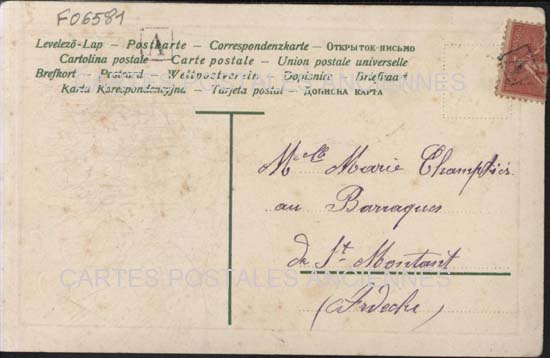 F06581
A
Levelező-Lap – Postkarte – Correspondenzkarte – ОТКРЫТОК-ПИСЬМО
Cartolina postale – Carte postale – Union postale universelle
Brefkort – Postcard – Weltpostverein – Dopisnice – Briefkaart
Karta Korespondencyjna – Tarjeta postal – ДОПИСНА КАРТА
CARTES POSTALES ANCIENNES
Melle Marie
au Barraques
de St. Montant
(Ardèche)
CARTES POSTALES ANCIENNES